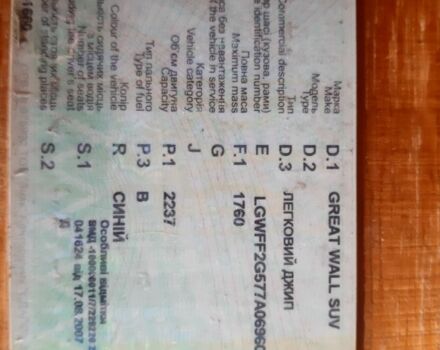 Марка
Make
D.1 GREAT WALL SUV
Модель
Type
D.2
Тип
Commercial description
D.3 ЛЕГКОВИЙ ДЖИП
шасі (кузова, рами)
identification number
E LGWFF2G577A0696
Повна маса
Maximum mass
F.1 1760
маса без навантаження
of the vehicle in service
G
Категорія
Vehicle category
J
Об'єм двигуна
Capacity
P.1 2237
Тип пального
Type of fuel
P.3 B
Колір
Colour of the vehicle
R СИНІЙ
сидячих місць
з місцем водія
Number of seats
driver's seat
S.1
стоячих місць
of standing places
S.2
Особливі відмітки
041624 від 17.08.2007